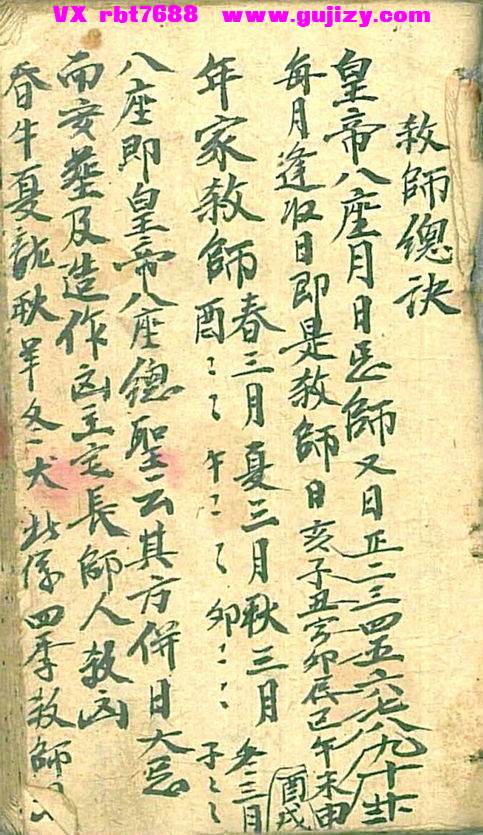 VX rbt7688 www.gujizy.com
敎師總訣
皇帝八座月日忌師又日正二三四五六七八九十
每月逢收日即是敎師日亥子丑寅卯辰巳午未申酉戌
年家敎師春三月夏三月秋三月冬三月
酉午卯子
八座即皇帝八座總聖云其方併日大忌
而安葬及造作凶主宅長師人敎凶
春牛夏龍秋羊冬犬此係四季敎師